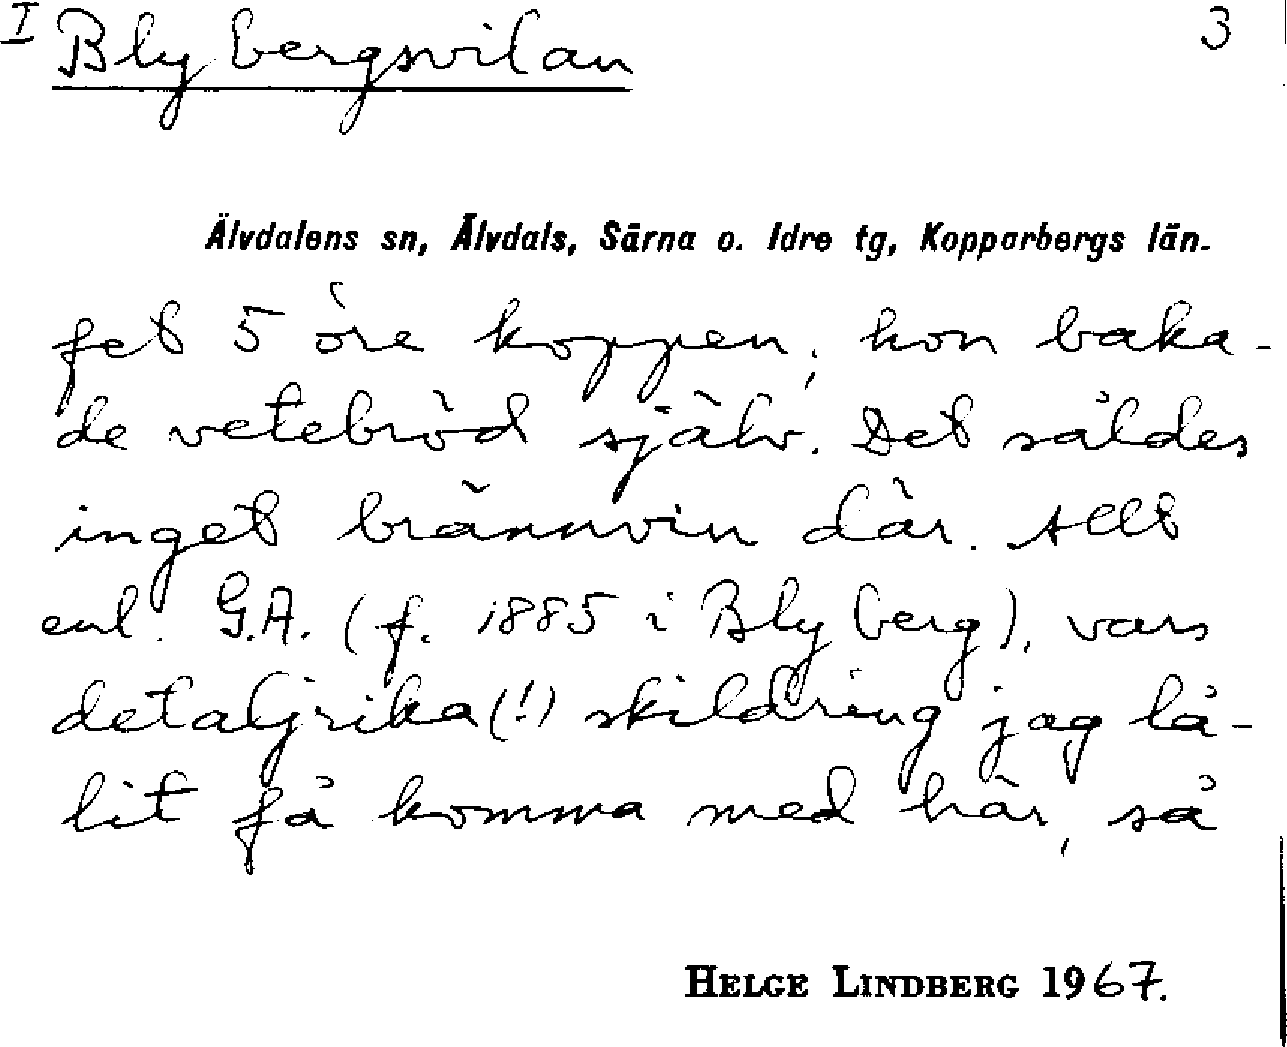 I Blybergsvilan 3
Älvdalens sn, Älvdals, Särna o. Idre tg, Kopparbergs län.
fet 5 öre koppen; hon baka-
de vetebröd själv. Det såldes
inget brännvin där. Allt
enl. G.A. (f. 1885 i Blyberg), vars
detaljrika(!) skildring jag lå-
tit få komma med här, så
HELGE LINDBERG 1967.